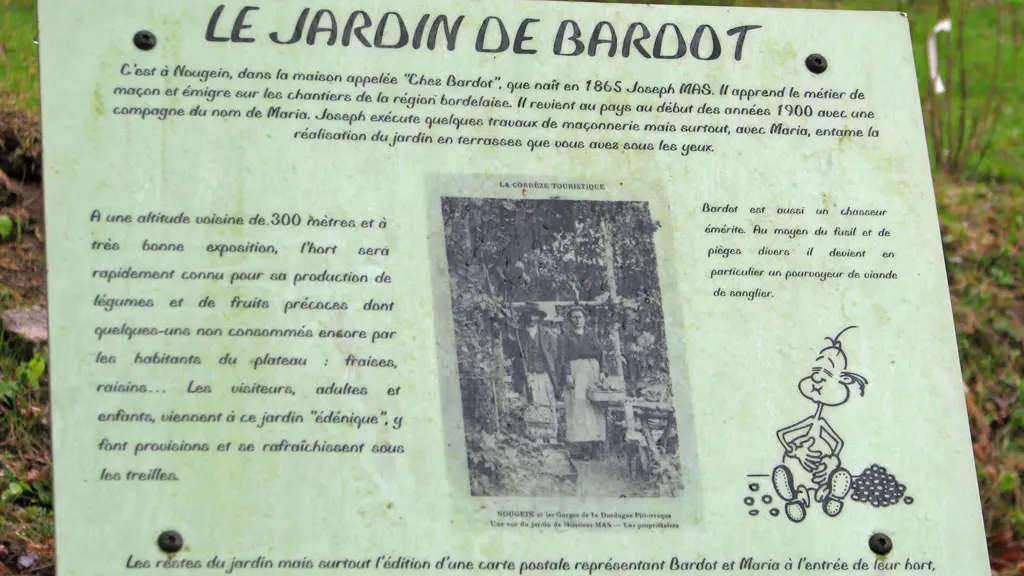 LE JARDIN DE BARDOT
C'est à Nougein, dans la maison appelée "Chez Bardot", que naît en 1865 Joseph MAS. Il apprend le métier de
maçon et émigre sur les chantiers de la région bordelaise. Il revient au pays au début des années 1900 avec une
compagne du nom de Maria. Joseph exécute quelques travaux de maçonnerie mais surtout, avec Maria, entame la
réalisation du jardin en terrasses que vous avez sous les yeux.
A une altitude voisine de 300 mètres et à
très bonne exposition, l'hort sera
rapidement connu pour sa production de
légumes et de fruits précoces dont
quelques-uns non consommés encore par
les habitants du plateau : fraises,
raisins... Les visiteurs, adultes et
enfants, viennent à ce jardin "édénique", y
font provisions et se rafraîchissent sous
les treilles.
LA CORRÈZE TOURISTIQUE
NOUGEIN et les Gorges de la Dordogne Pittoresque
Une vue du jardin de Monsieur MAS — Les propriétaires
Bardot est aussi un chasseur
émérite. Au moyen du fusil et de
pièges divers il devient en
particulier un pourvoyeur de viande
de sanglier.
Les restes du jardin mais surtout l'édition d'une carte postale représentant Bardot et Maria à l'entrée de leur hort,